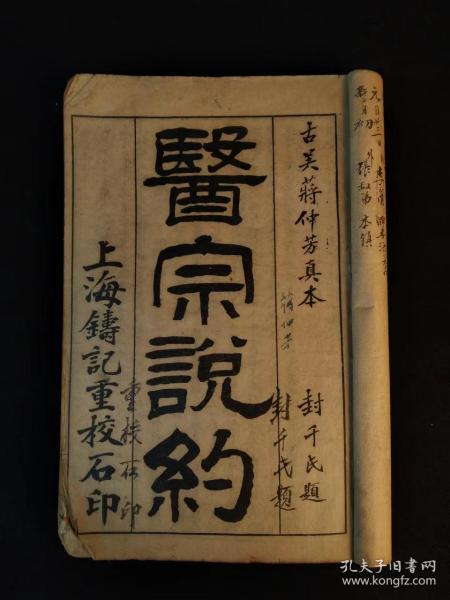 古吴蔣仲芳真本
蔣仲芳
封千氏題
封千氏題
醫宗說約
上海鑄記重校石印
重校石印
孔夫子旧书网
www.kongfz.com